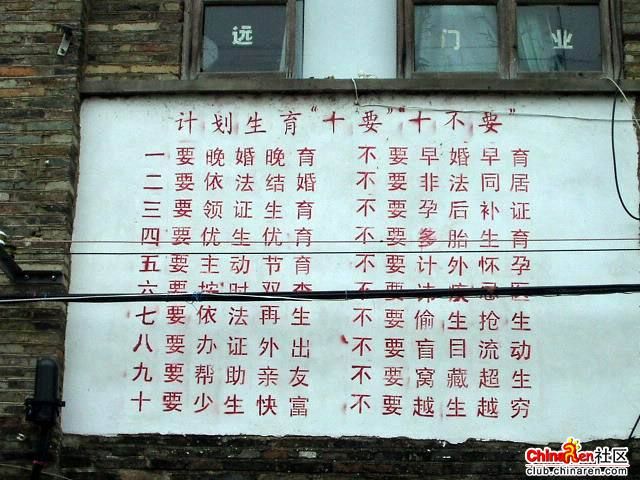 远 门 业
计划生育“十要”“十不要”
一要晚婚晚育 不要早婚早育
二要依法结婚 不要非法同居
三要领证生育 不要孕后补证
四要优生优育 不要多胎生育
五要主动节育 不要计外怀孕
六要按时双查 不要讳疾忌医
七要依法再生 不要偷生抢生
八要办证外出 不要盲目流动
九要帮助亲友 不要窝藏超生
十要少生快富 不要越生越穷
ChinaRen社区
club.chinaren.com